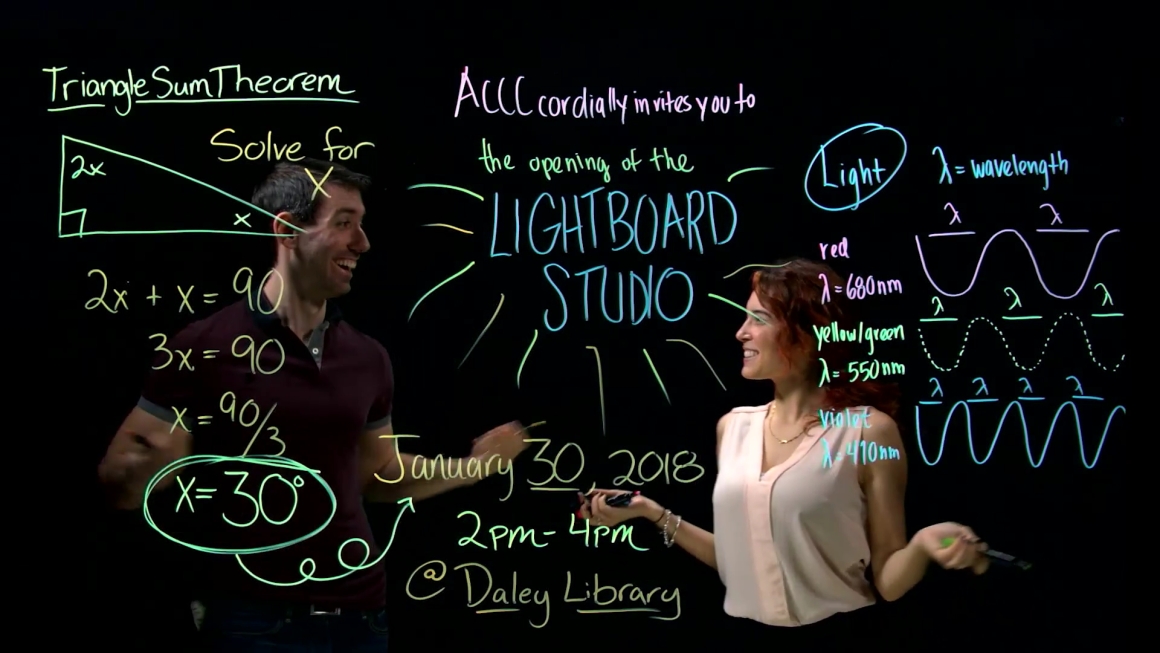 Triangle Sum Theorem
2x
x
Solve for
x
2x + x = 90
3x = 90
x = 90/3
x = 30°
ACCC cordially invites you to
the opening of the
LIGHTBOARD
STUDIO
January 30, 2018
2pm - 4pm
@ Daley Library
Light
λ = wavelength
λ λ
red
λ = 680nm
λ λ λ
yellow/green
λ = 550nm
λ λ λ λ
violet
λ = 410nm